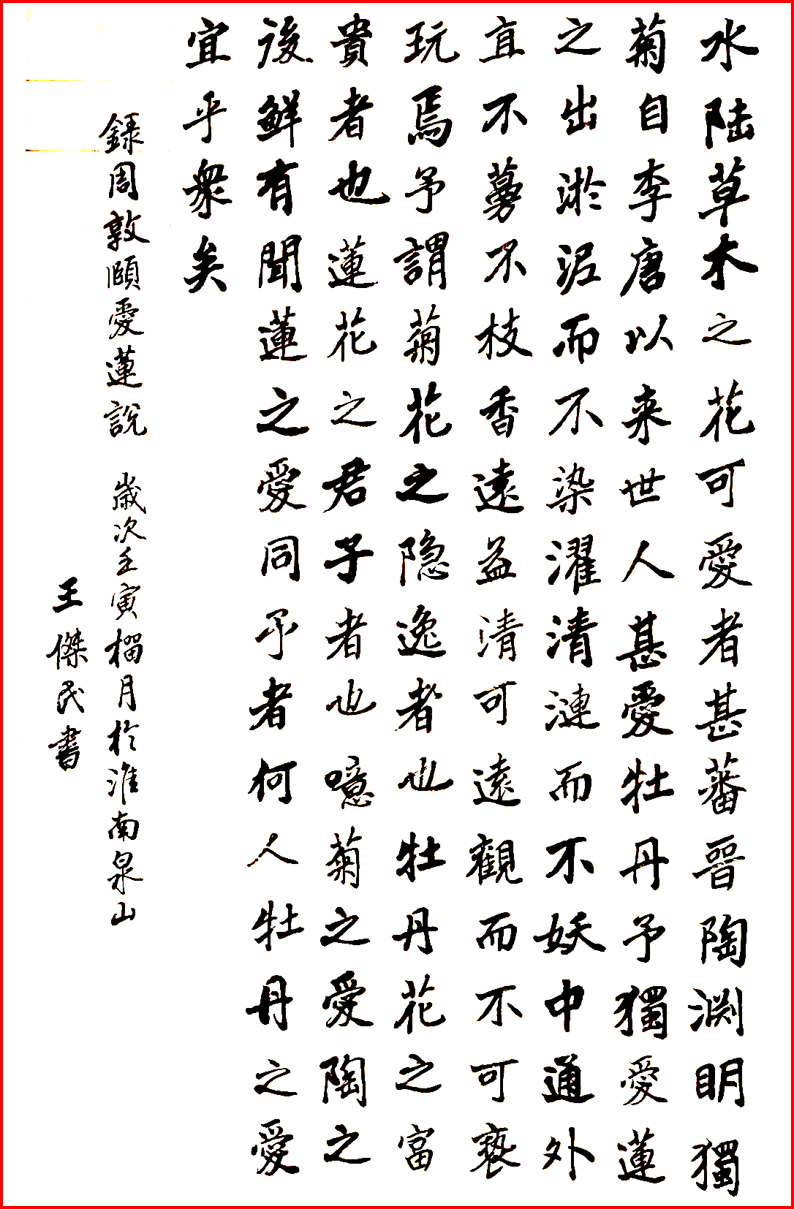 水陆草木之花可愛者甚蕃晉陶渊明獨
菊自李唐以来世人甚愛牡丹予獨愛蓮
之出淤泥而不染濯清漣而不妖中通外
直不蔓不枝香遠益清可遠觀而不可亵
玩焉予謂菊花之隐逸者也牡丹花之富
貴者也蓮花之君子者也噫菊之愛陶之
後鮮有聞蓮之愛同予者何人牡丹之愛
宜乎衆矣
録周敦頤愛蓮説 歲次壬寅榴月於淮南泉山
王傑民書